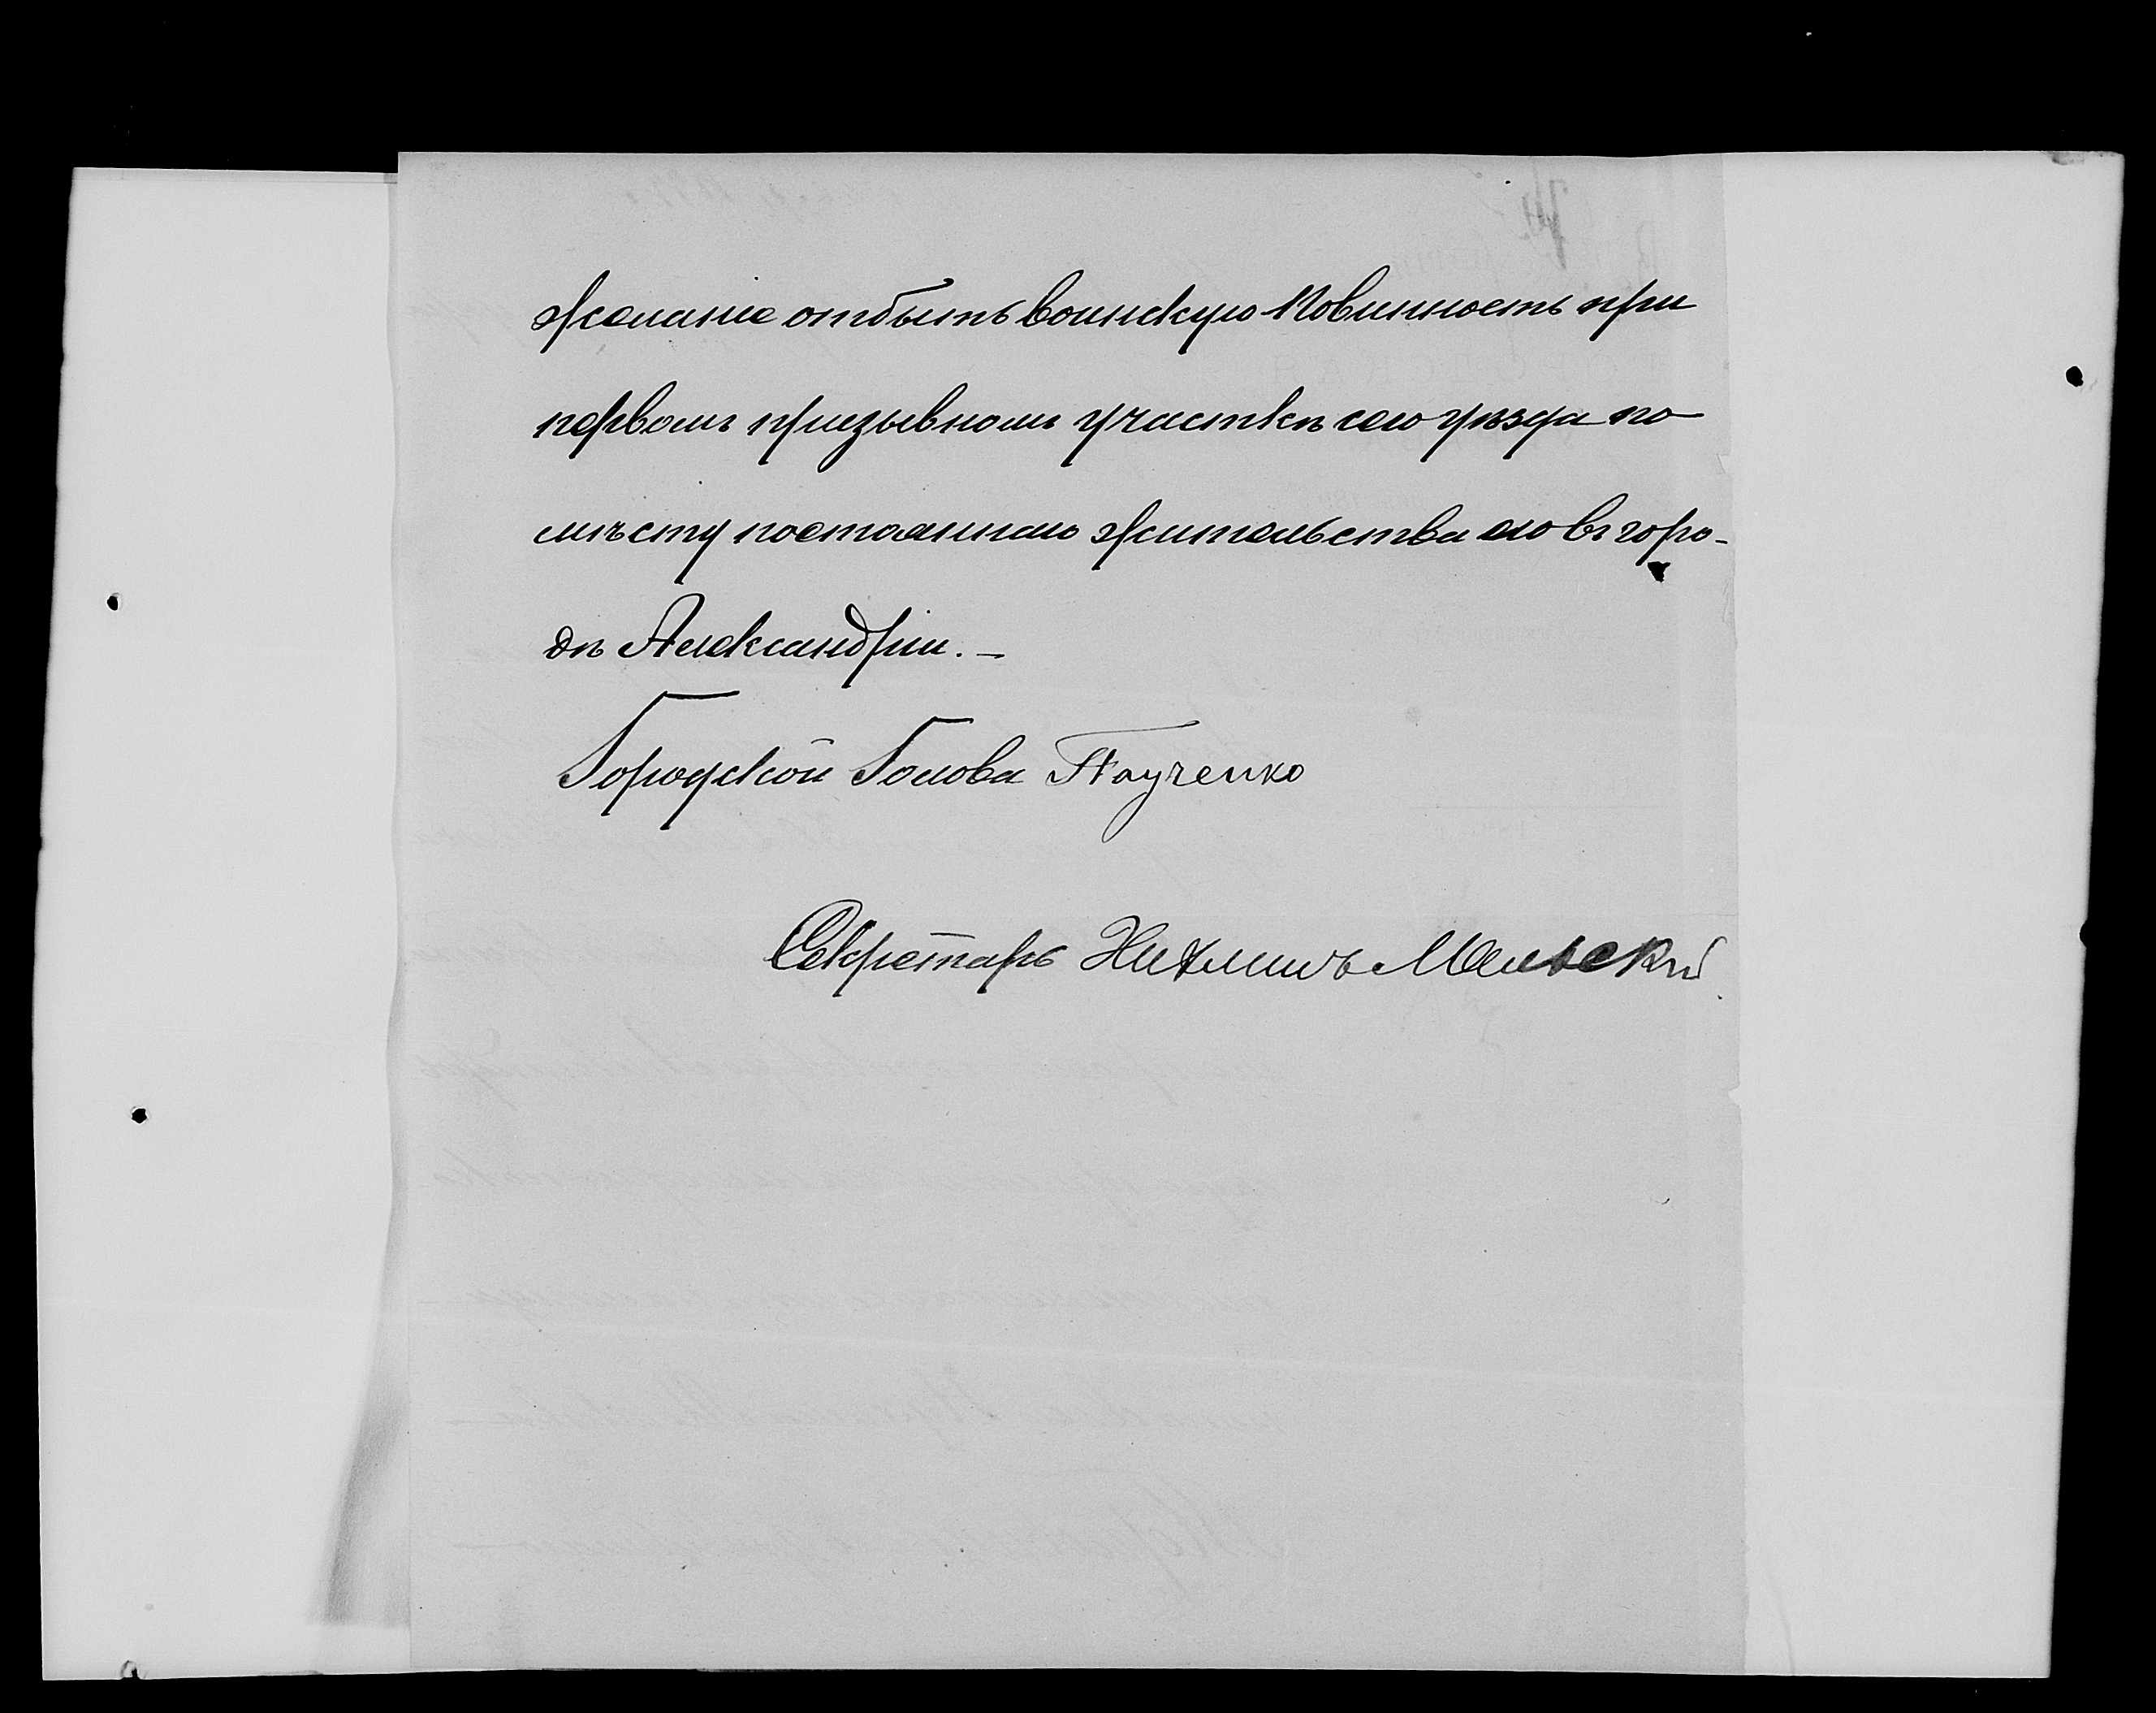 желаніе отбыть воинскую Повинность при
первомъ призывномъ участкѣ сего уѣзда по
мѣсту постояннаго жительства его въ горо-
дѣ Александріи. —
Городской Голова Паученко
Секретарь